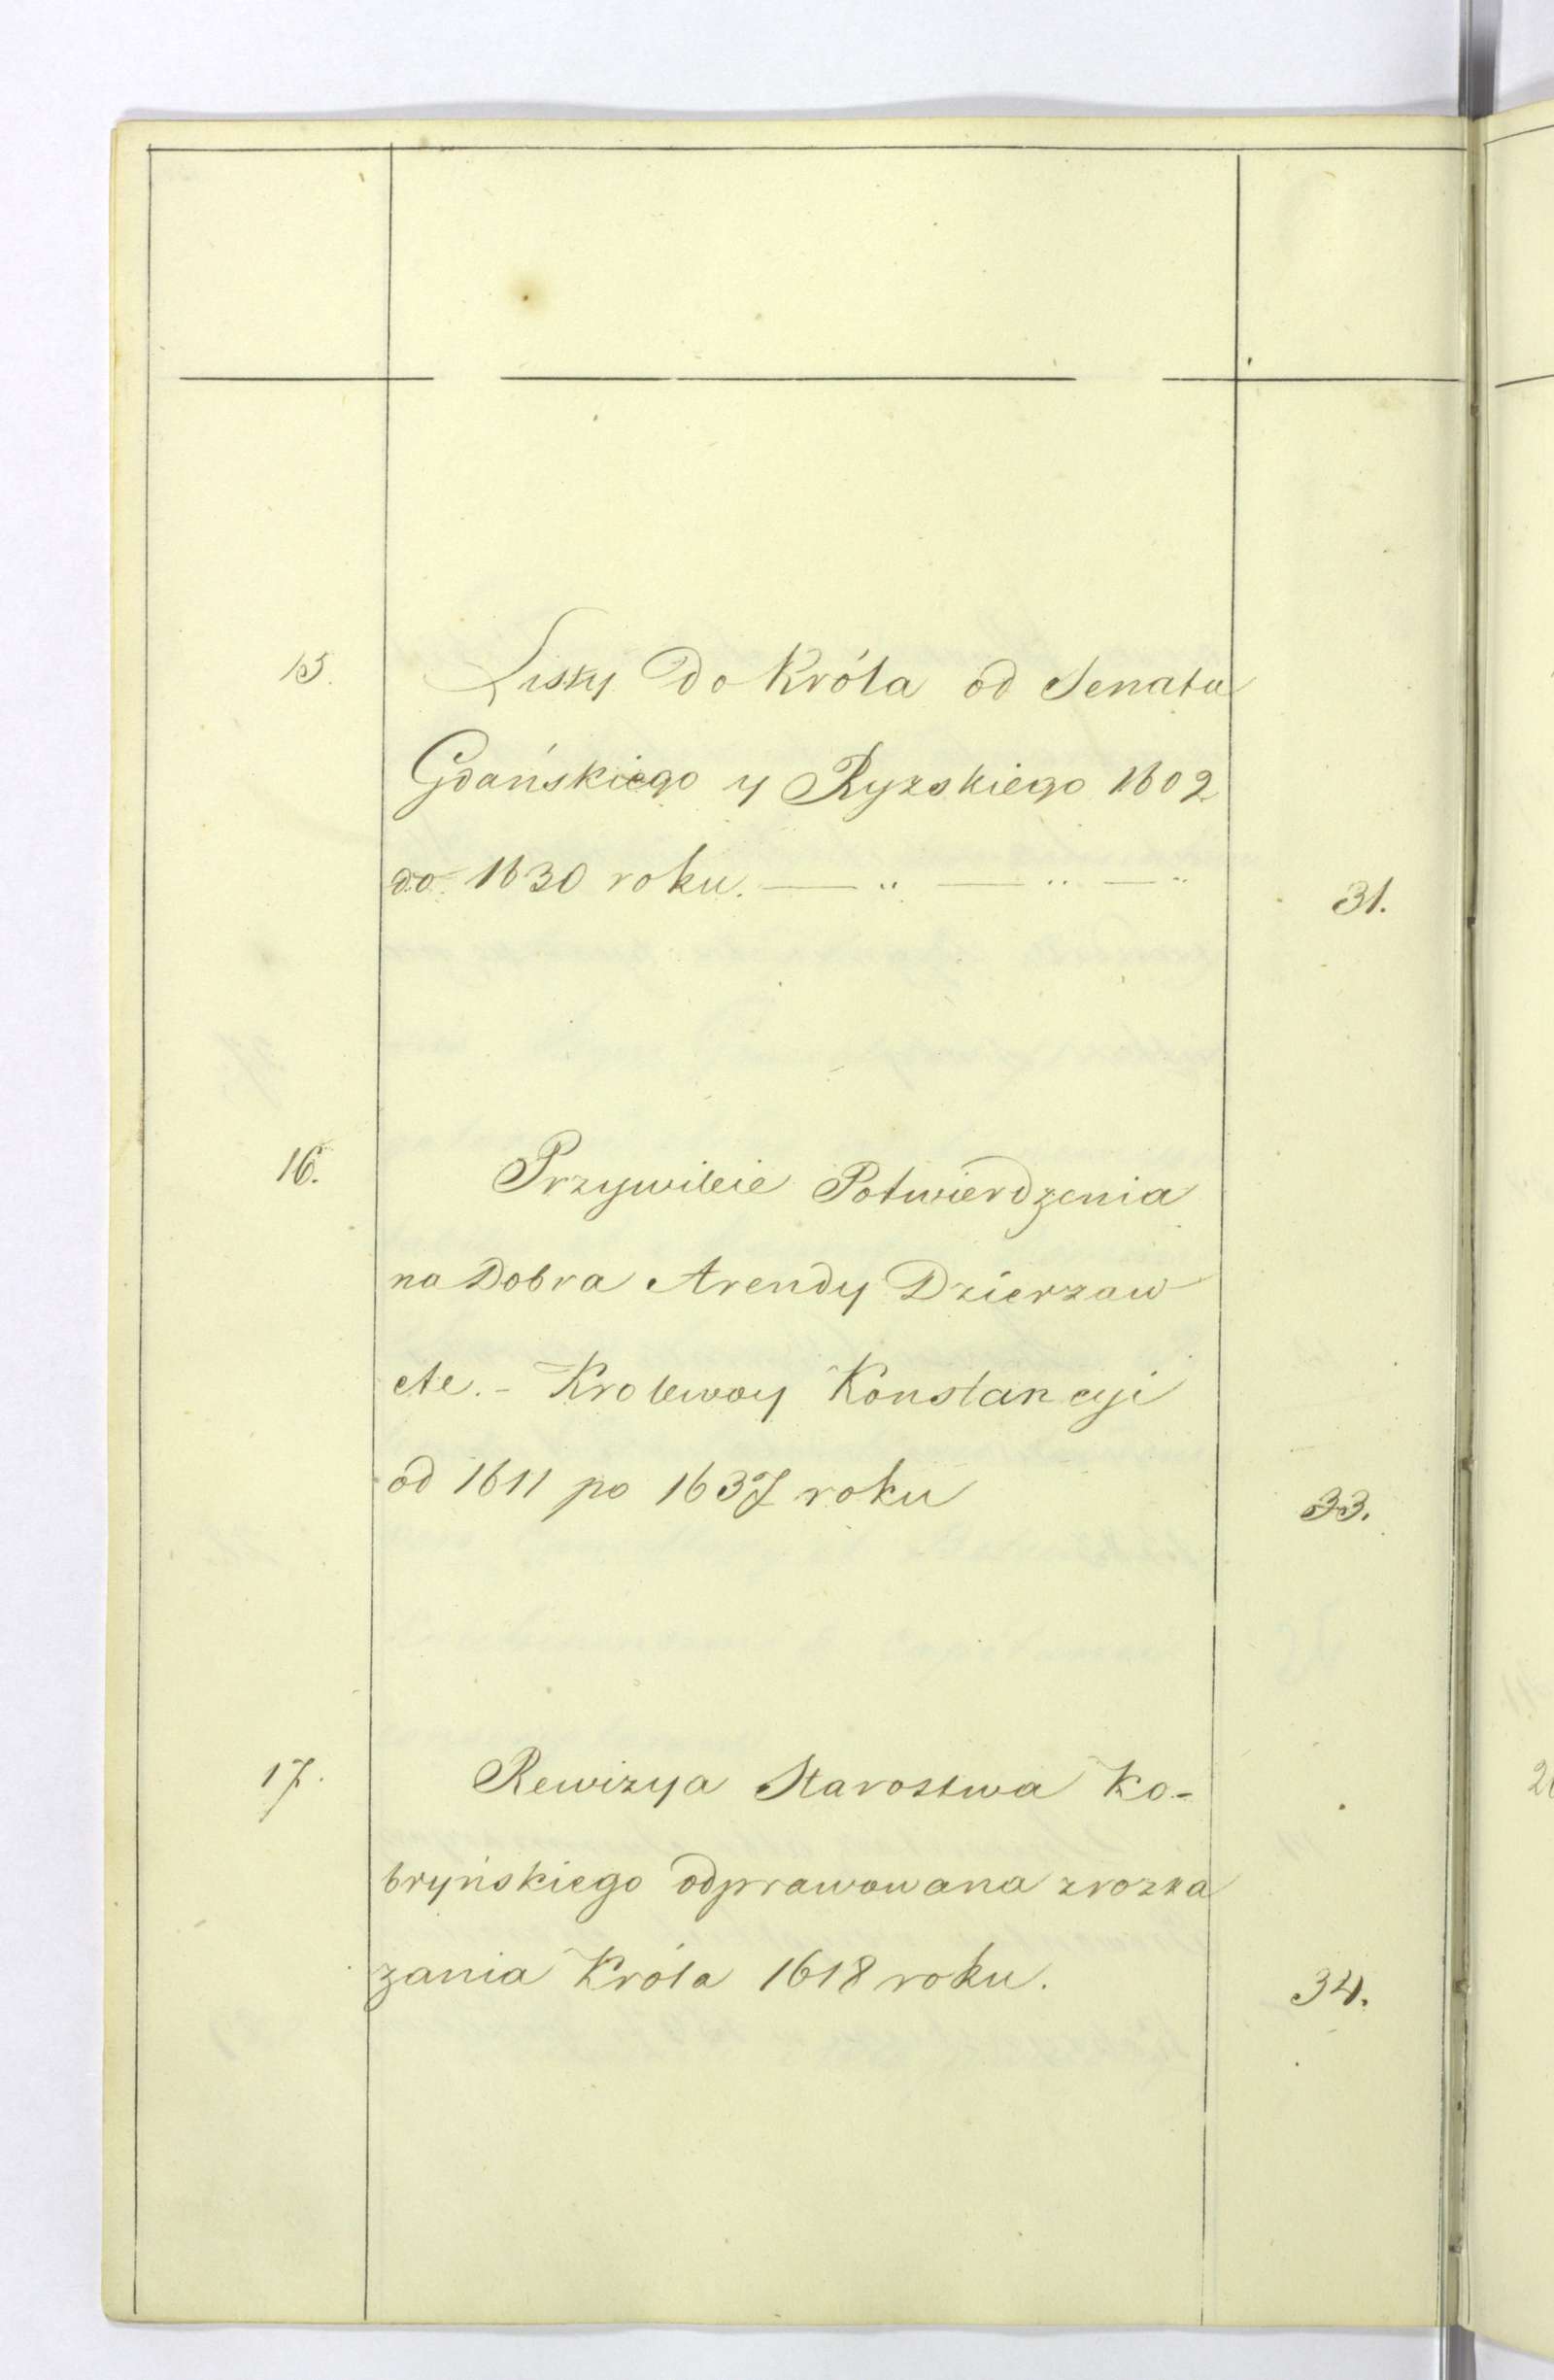 15. Listy do Króla od Senatu
Gdańskiego y Ryzskiego 1602
do 1630 roku. — „ — „ — „
31.
16. Przywileie Potwierdzenia
na Dobra Arendy Dzierzaw
etc. - Krolewoy Konstancyi
od 1611 po 1637 roku
33.
17. Rewizya Starostwa Ko-
bryńskiego odprawowana zrozka
zania Króla 1618 roku.
34.